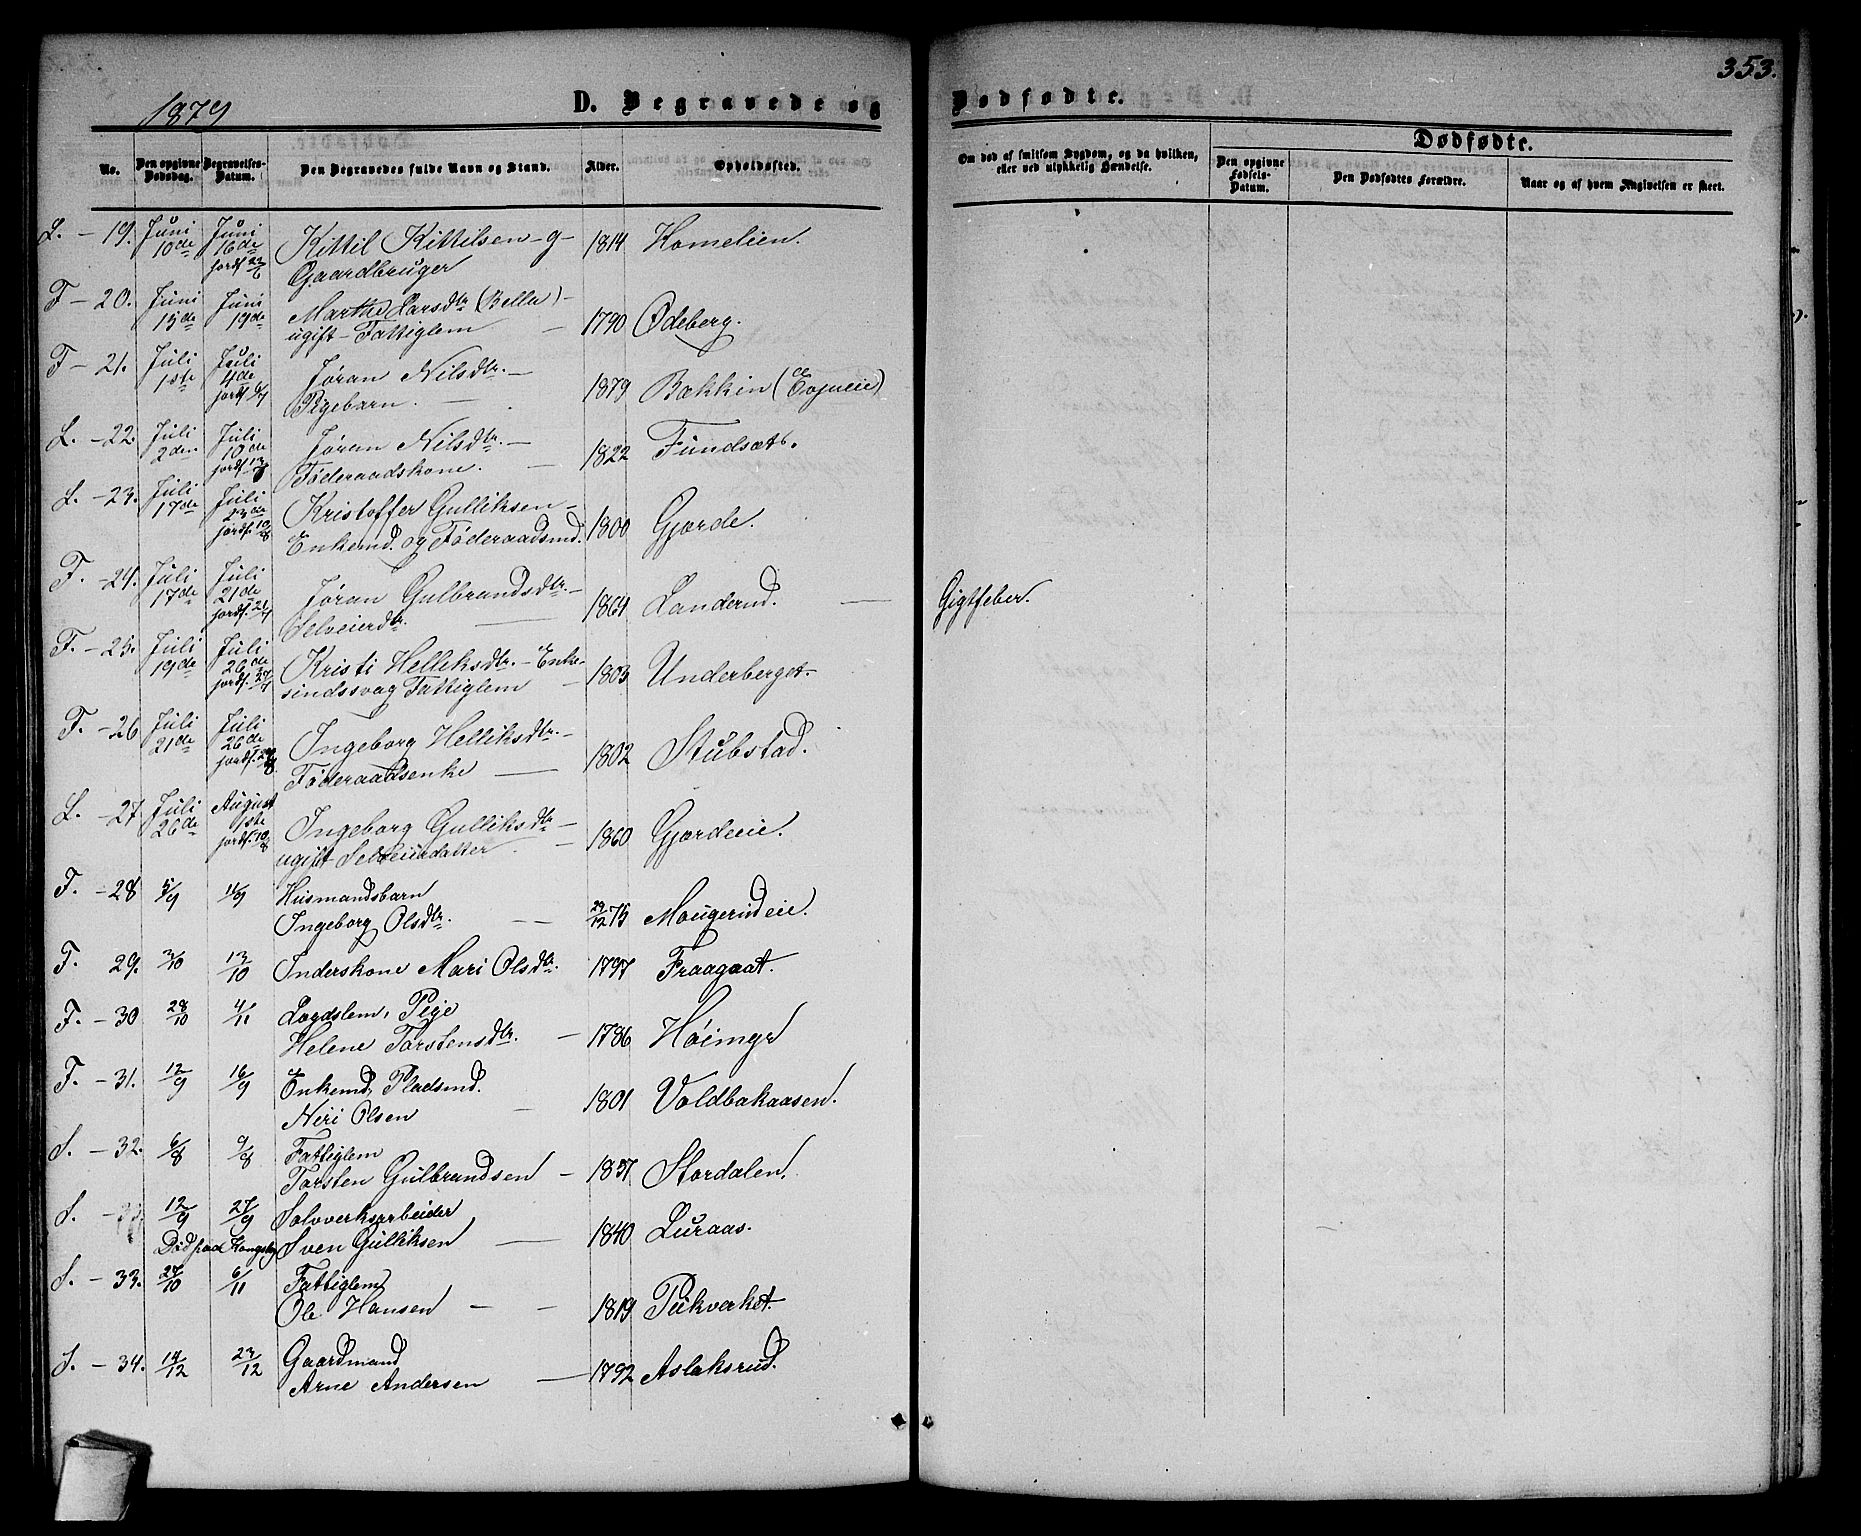 353.
1879
D. Begravede og Dødfødte.
No.
Den opgivne Dødsdag.
Begravelses-Datum.
Den Begravedes fulde Navn og Stand.
Alder.
Opholdssted.
Om død af smitsom Sygdom, og da hvilken, eller ved ulykkelig Hændelse.
Dødfødte.
Den opgivne Fødsels-Datum.
Den Dødfødtes Forældre.
Naar og af hvem Angivelsen er skeet.
L. - 19. Juni 10de Juni 16de jordf. 22/6 Kittil Kittilsen - g - 1814 Homelien.
Gaardbruger
F - 20. Juni 15de Juni 19de Marthe Larsdtr (Bella) -
ugift - Fattiglem - 1790 Ødeberg.
F - 21. Juli 1ste Juli 4de jordf. 6/7 Jøran Nilsdtr. -
Pigebarn. - 1879 Bakkin (Evjueie)
L. - 22. Juli 2den Juli 10de jordf. 13/7 Jøran Nilsdtr. -
Føderaadskone. - 1822 Fundsæt.
L. - 23. Juli 17de Juli 23de jordf. 10/8 Kristoffer Gulliksen -
Enkemd. og Føderaadsmd. 1800 Gjærde.
F. - 24. Juli 17de Juli 21de jordf. Jøran Gulbrandsdtr. - 1864 Landerud. - Gigtfeber.
Selveierdtr. -
F. - 25. Juli 19de Juli 26de jordf. 27/7 Kristi Helliksdtr. - Enke - 1803 Underberget.
sindssvag Fattiglem -
F. - 26 Juli 21de Juli 26de jordf. Ingeborg Helliksdtr. - 1802 Stubstad.
Føderaadsenke -
L. - 27 Juli 26de August 1ste jordf. 10/8 Ingeborg Gulliksdtr - 1860 Gjærdeeie.
ugift Selveierdatter. -
F. - 28 5/9 11/9 Husmandsbarn
Ingeborg Olsdtr. - 29/12 75 Mougerudeie.
F. 29. 3/10 13/10 Inderskone Mari Olsdtr. 1797 Fraagaat.
F. - 30 28/10 4/11 Lægdslem, Pige
Helene Torstensdtr. - 1786 Høimyr
F. - 31. 12/9 16/9 Enkemd, Pladsmd.
Neri Olsen - 1801 Voldbakaasen.
S. - 32. 6/8 9/8 Fattiglem
Torsten Gulbrandsen - 1837 Stordalen.
S. - 12/9 27/9 Sølvverksarbeider
Død paa Kongsbg Sven Gulliksen - 1840 Luraas.
S. - 33. 27/10 6/11 Fattiglem
Ole Hansen - - 1819 Pukverket.
S. - 34. 14/12 23/12 Gaardmand
Arne Andersen - 1792 Aslaksrud.